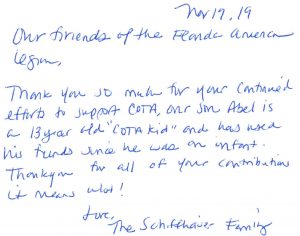 Nov 19, 19
Our friends of the Florida American
Legion,
Thank you so much for your continued
efforts to support COTA, our son Abel is
a 13 year old "COTA kid" and has used
his funds since he was an infant.
Thankyou for all of your contributions
it means alot!
Love,
The Family